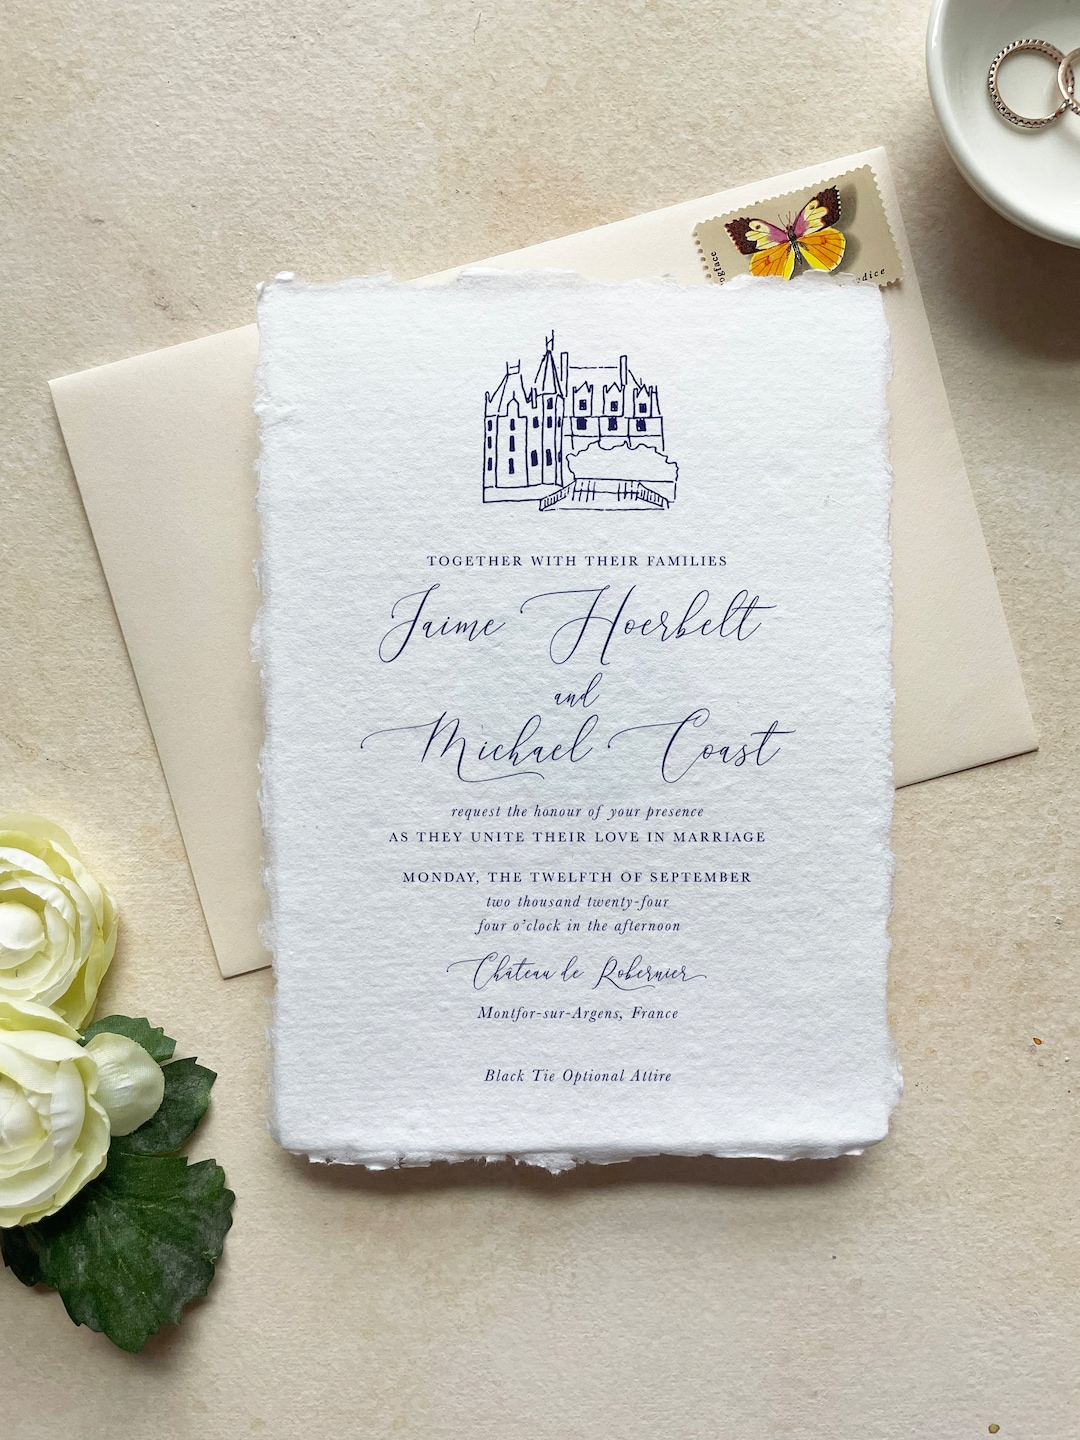 dogface
TOGETHER WITH THEIR FAMILIES
Jaime Hoerbelt
and
Michael Coast
request the honour of your presence
AS THEY UNITE THEIR LOVE IN MARRIAGE
MONDAY, THE TWELFTH OF SEPTEMBER
two thousand twenty-four
four o'clock in the afternoon
Château de Robernier
Montfor-sur-Argens, France
Black Tie Optional Attire